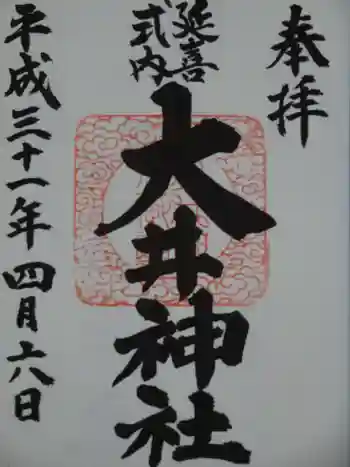 奉拝
延喜
式内
大井神社
平成三十一年四月六日